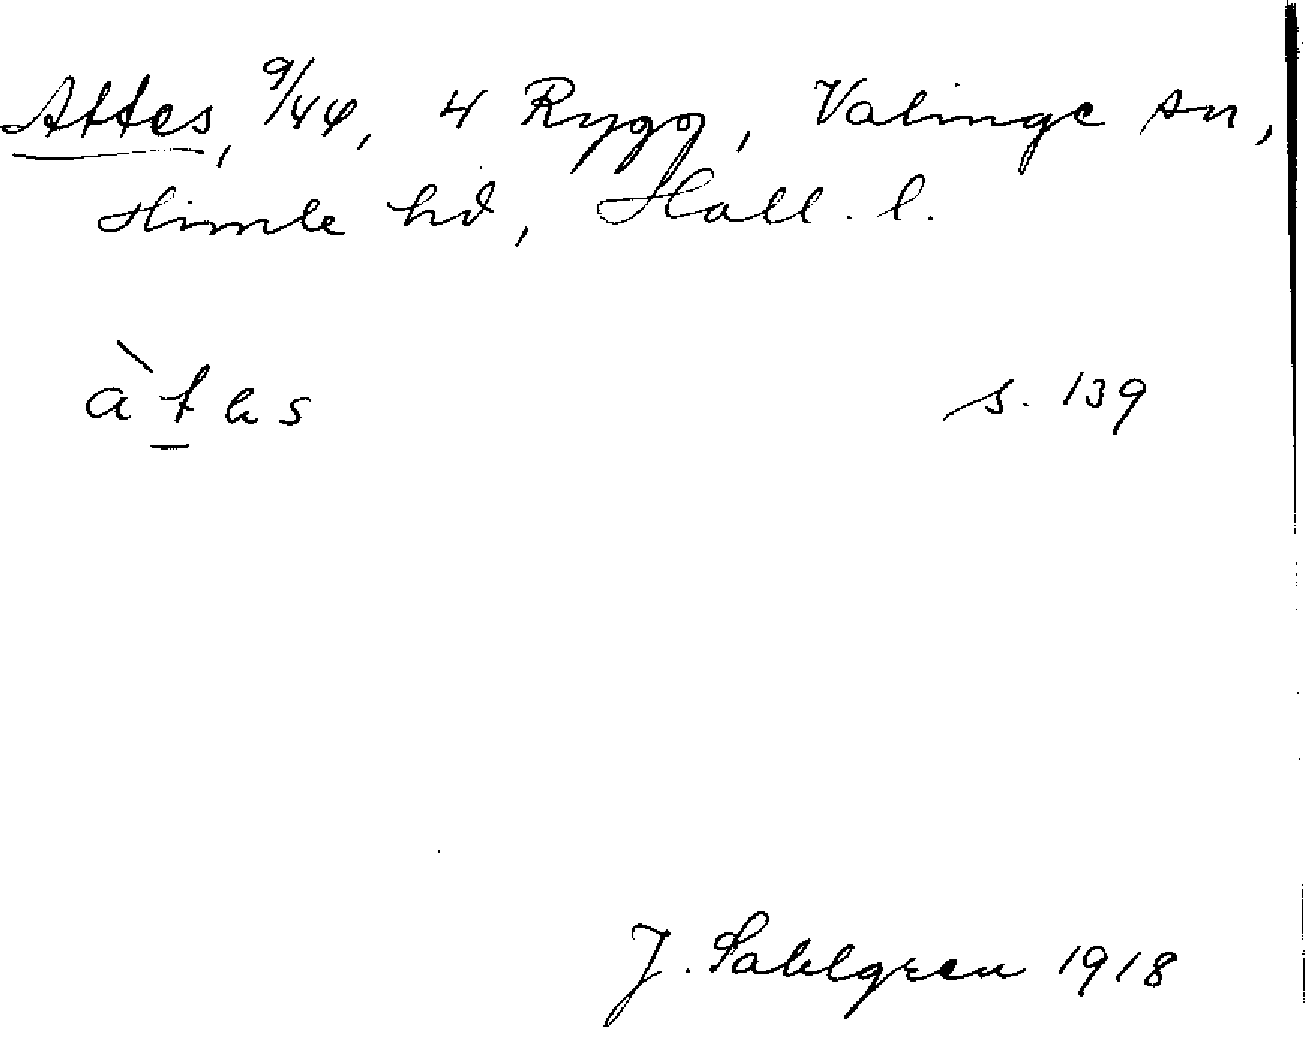 Attes, 9/44, 4 Rygg, Valinge sn,
Himle hd, Hall. l.
àtas s. 139
J. Sahlgren 1918